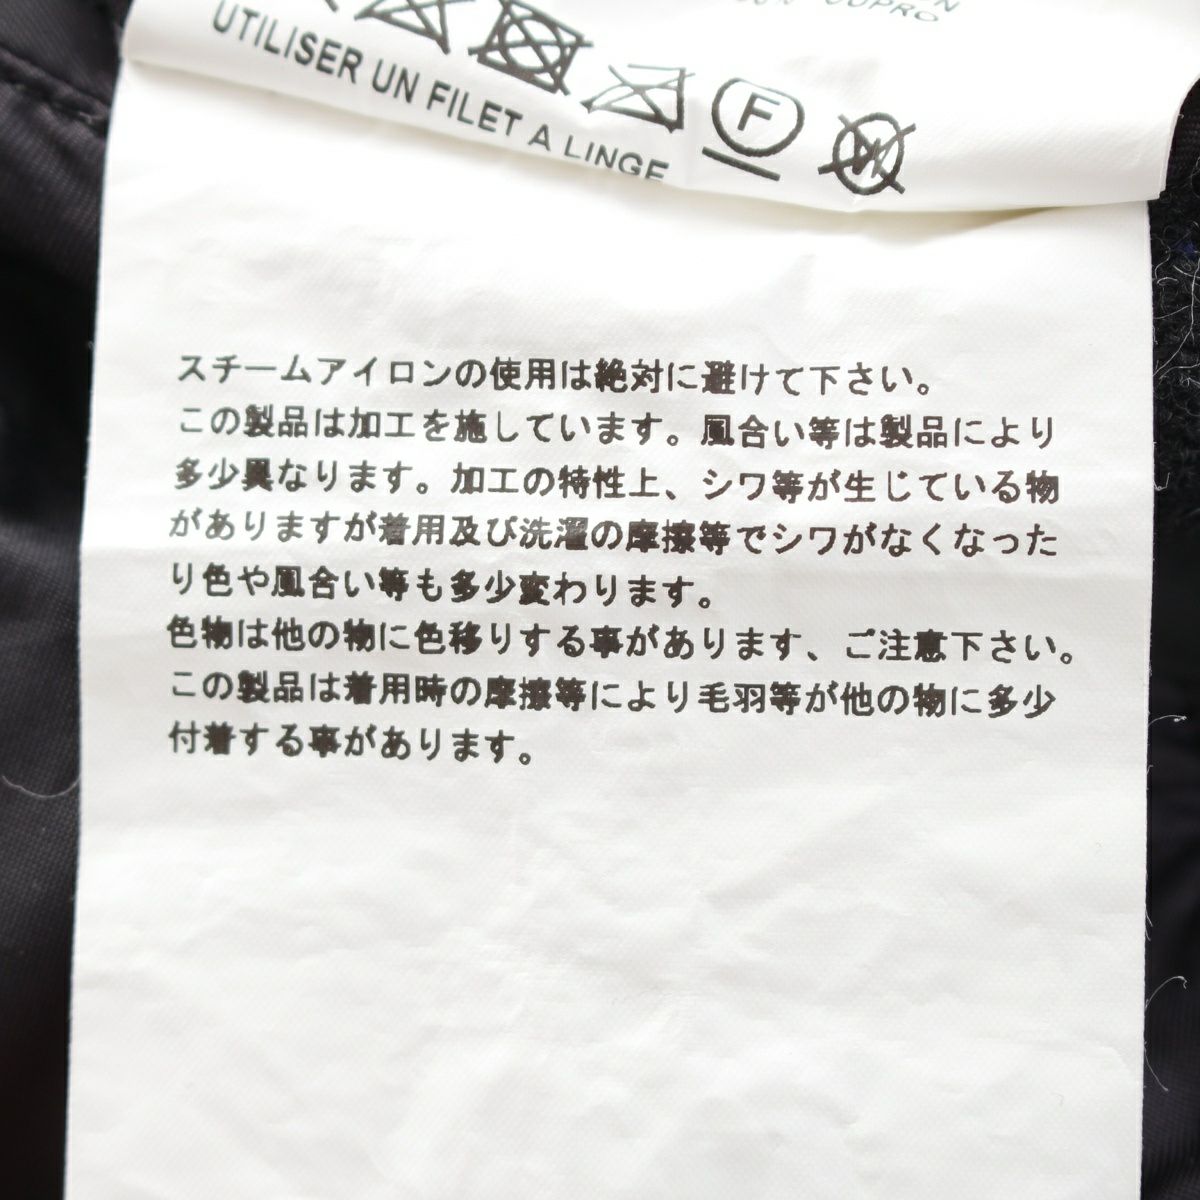 CUPRO
UTILISER UN FILET A LINGE
F
W
スチームアイロンの使用は絶対に避けて下さい。
この製品は加工を施しています。風合い等は製品により
多少異なります。加工の特性上、シワ等が生じている物
がありますが着用及び洗濯の摩擦等でシワがなくなった
り色や風合い等も多少変わります。
色物は他の物に色移りする事があります、ご注意下さい。
この製品は着用時の摩擦等により毛羽等が他の物に多少
付着する事があります。